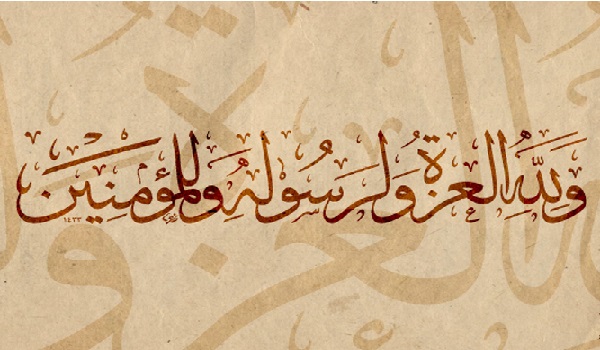 وَلِلَّهِ العِزَّةُ وَلِرَسُولِهِ وَلِلْمُؤْمِنِيْنَ
١٤٣٣